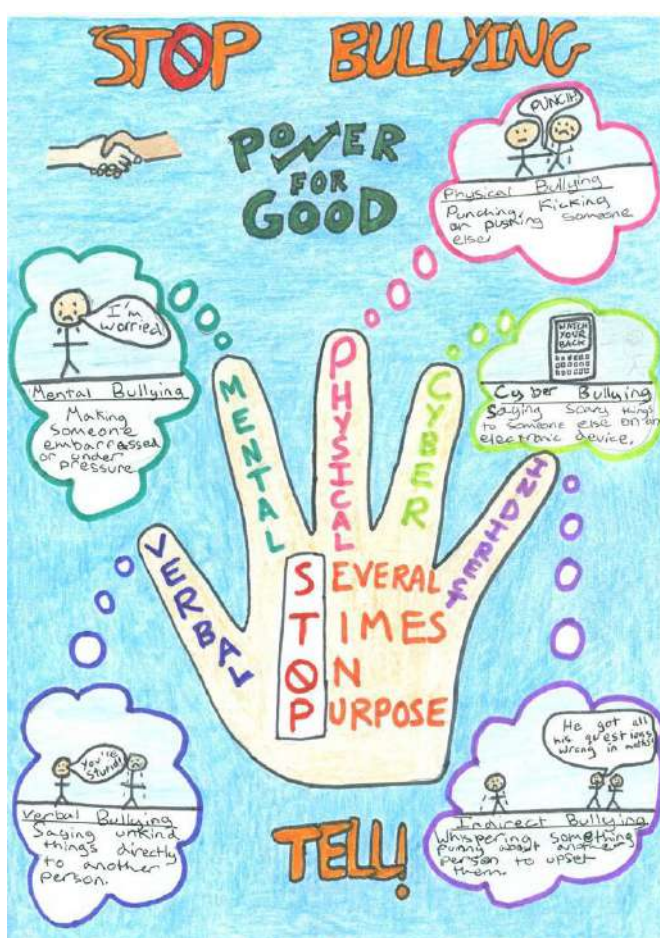 STOP BULLYING
POWER
FOR
GOOD
PUNCH!
Physical Bullying
Punching, Kicking
or pushing someone
else
I'm
worried.
Mental Bullying
Making
Someone
embarrassed
or under
pressure
WATCH
YOUR
BACK
Cyber Bullying
Saying Scary things
to someone else on an
electronic device.
VERBAL
MENTAL
PHYSICAL
CYBER
INDIRECT
SEVERAL
TIMES
ON
PURPOSE
You're
stupid!
Verbal Bullying
Saying unkind
things directly
to another
person.
He got all
his questions
wrong in maths!
Indirect Bullying
Whispering something
funny about another
person to upset
them.
TELL!